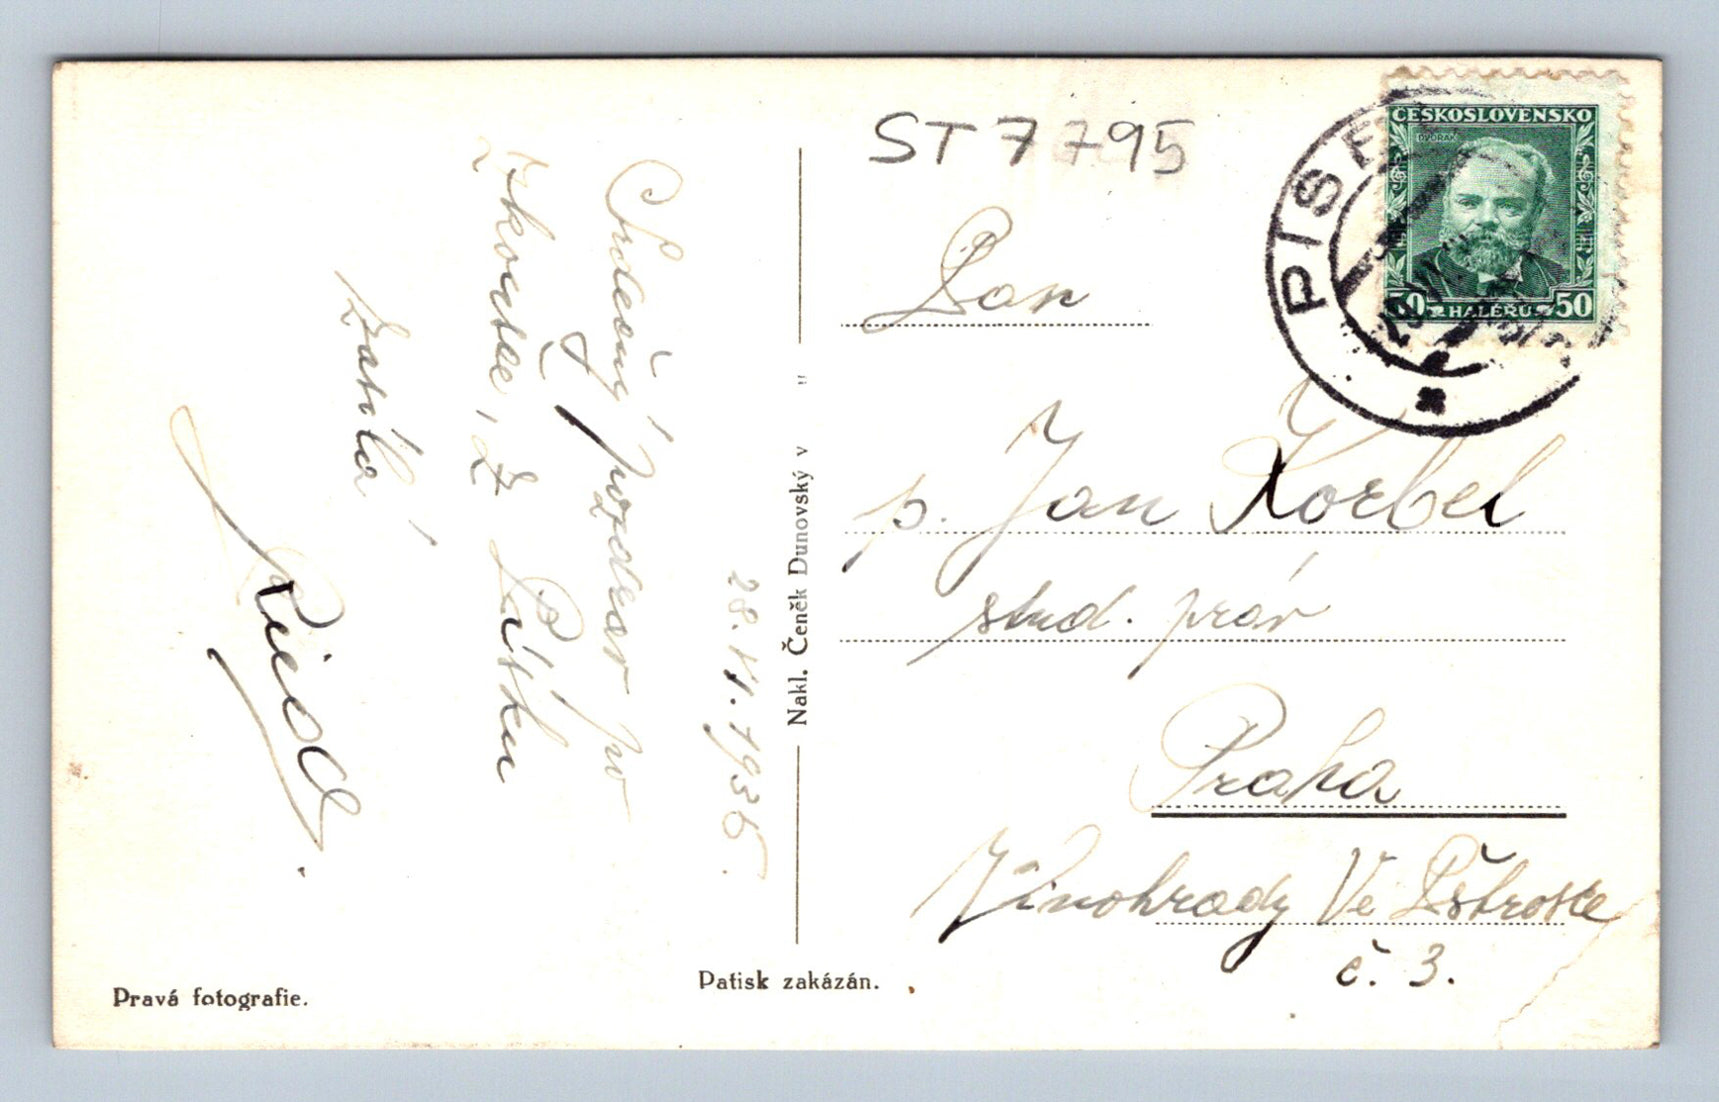 ST 7795
ČESKOSLOVENSKO
DVOŘÁK
50 HALÉŘŮ 50
PISE
Pan
p. Jan Korbel
stud. práv
Praha
Vinohrady Ve Pštrosce
č. 3.
28. VI. 1935.
Srdečný pozdrav po
zkoušce, z Písku
Zasílá
Nakl. Čeněk Dunovský v "
Pravá fotografie.
Patisk zakázán.